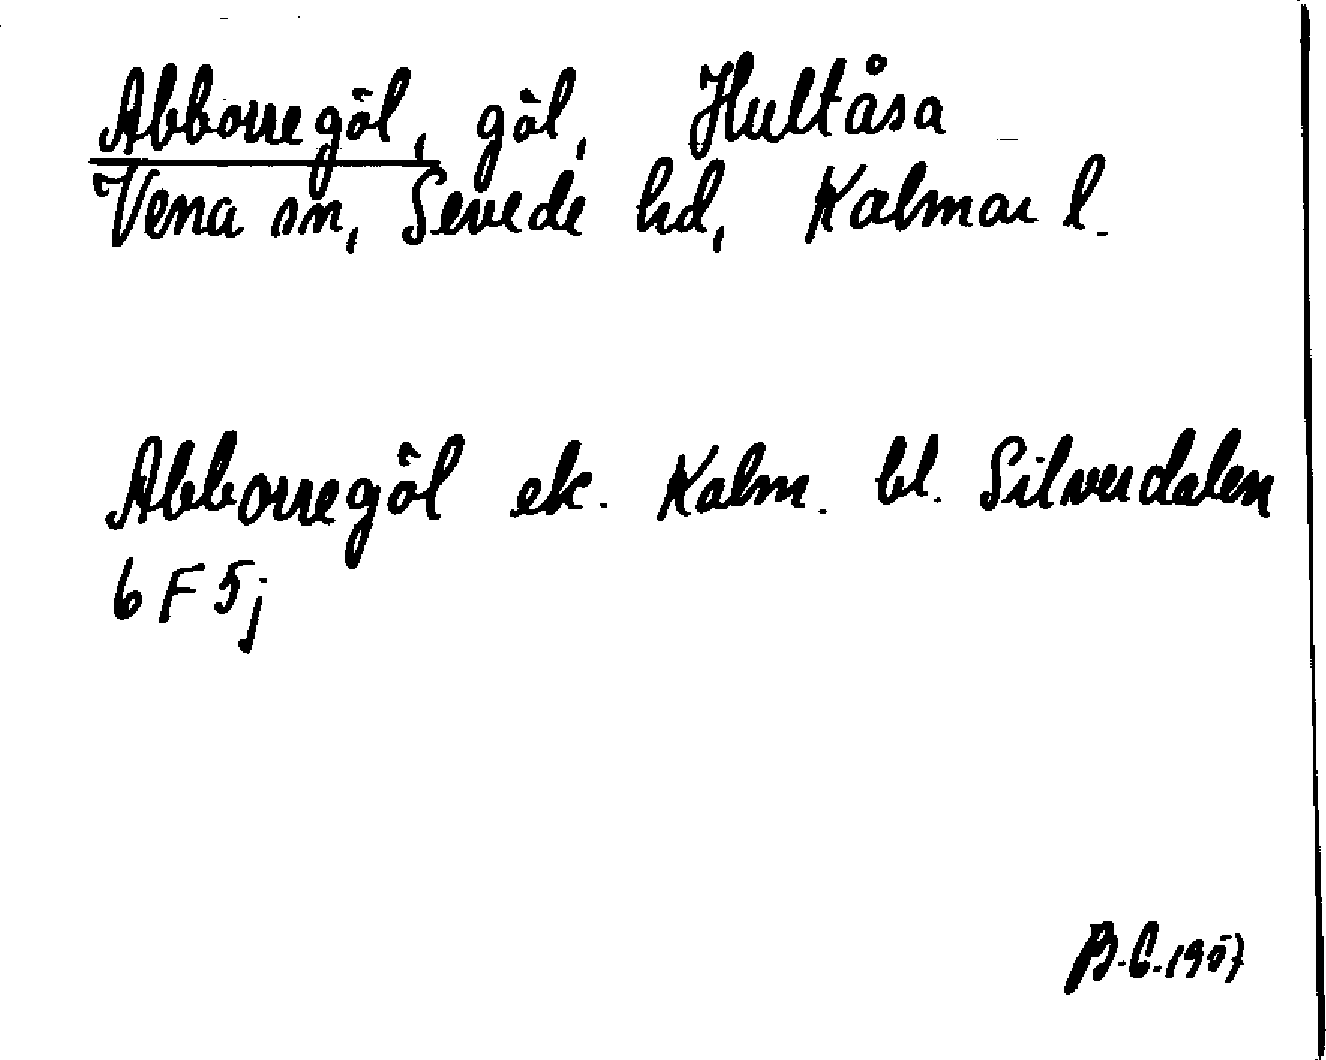 Abborregöl, göl, Hultåsa
Vena sn, Sevede hd, Kalmar l.
Abborregöl ek. Kalm. bl. Silverdalen
6 F 5j
B.C. 1957